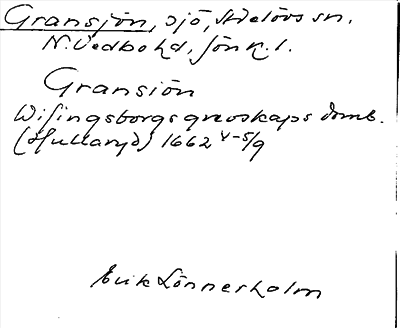 Gransjön, sjö, Askeryds sn.
N. Vedbo hd, Jönk. l.
Gransiön
Wisingsborgs grevskaps domb.
(Hullaryd) 1662 4-5/9
Erik Lönnerholm